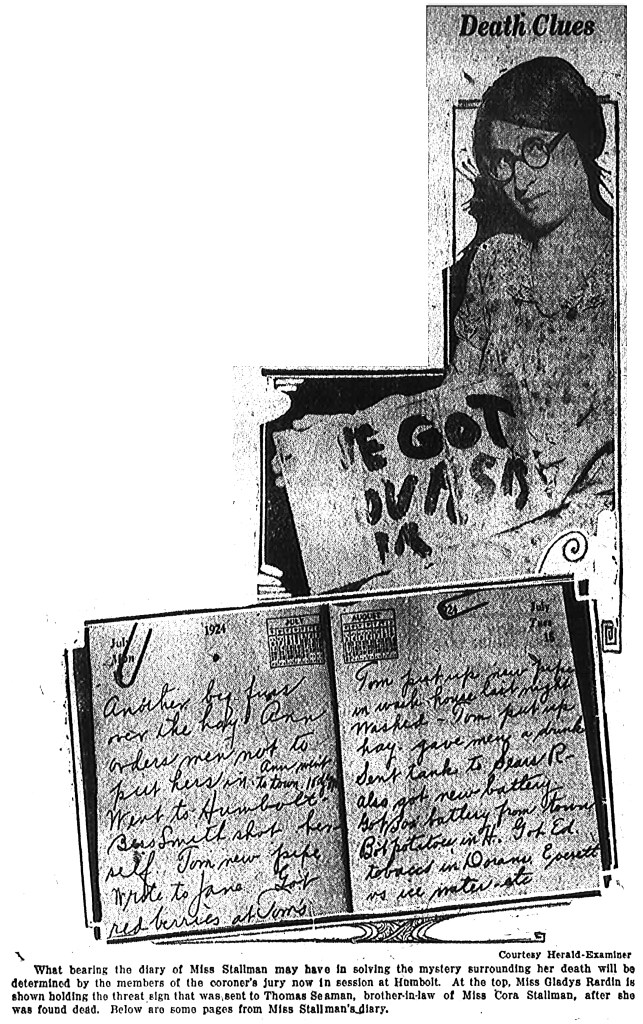 Death Clues
E GOT
July
Mon
1924
JULY
Another big fuss
over the hay. Ann
orders men not to
put hers in Ann went
to town
Went to Humbolt-
Bess Smith shot her
self. Tom new pipe
Wrote to Jane. Got
red berries at Tom's
AUGUST
July
Tues
15
Tom put up new pipe
in wash house last night
Washed - Tom put up
hay. gave men a drink
Sent tank to Sears R-
also got new battery
Got battery from town
Bot potatoes in H. Got Ed.
tobacco in Everett
us ice water
Courtesy Herald-Examiner
What bearing the diary of Miss Stallman may have in solving the mystery surrounding her death will be
determined by the members of the coroner's jury now in session at Humbolt. At the top, Miss Gladys Rardin is
shown holding the threat sign that was sent to Thomas Seaman, brother-in-law of Miss Cora Stallman, after she
was found dead. Below are some pages from Miss Stallman's diary.